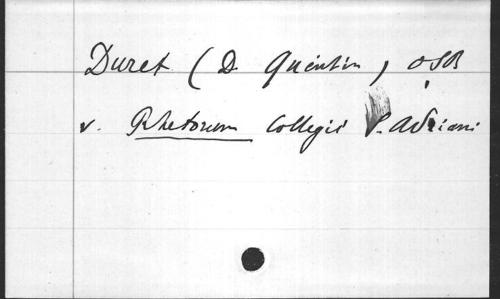 Duret (D. Quentin) OSB
v. Rhetorum Collegii S. Adriani